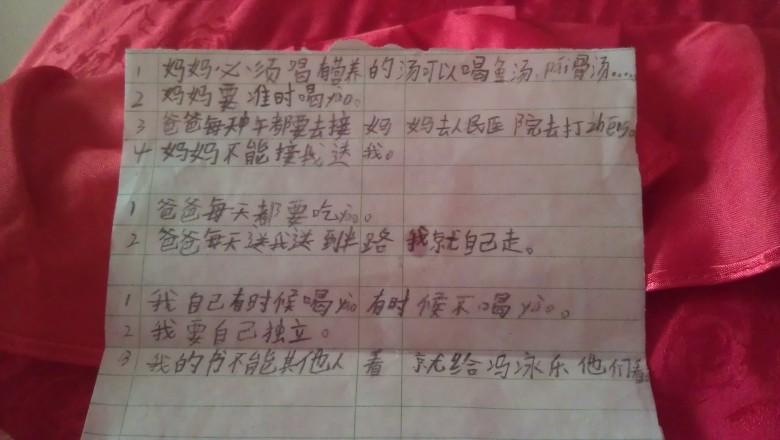 1 妈妈必须喝有营养的汤可以喝鱼汤.pái骨汤.....
2 妈妈要准时喝yào。
3 爸爸每天中午都要去接妈妈去人民医院去打zhēng。
4 妈妈不能接我送我。
1 爸爸每天都要吃yào。
2 爸爸每天送我送到半路我就自己走。
1 我自己有时候喝yào有时候不喝yào。
2 我要自己独立。
3 我的书不能其他人看就给冯泳乐他们看